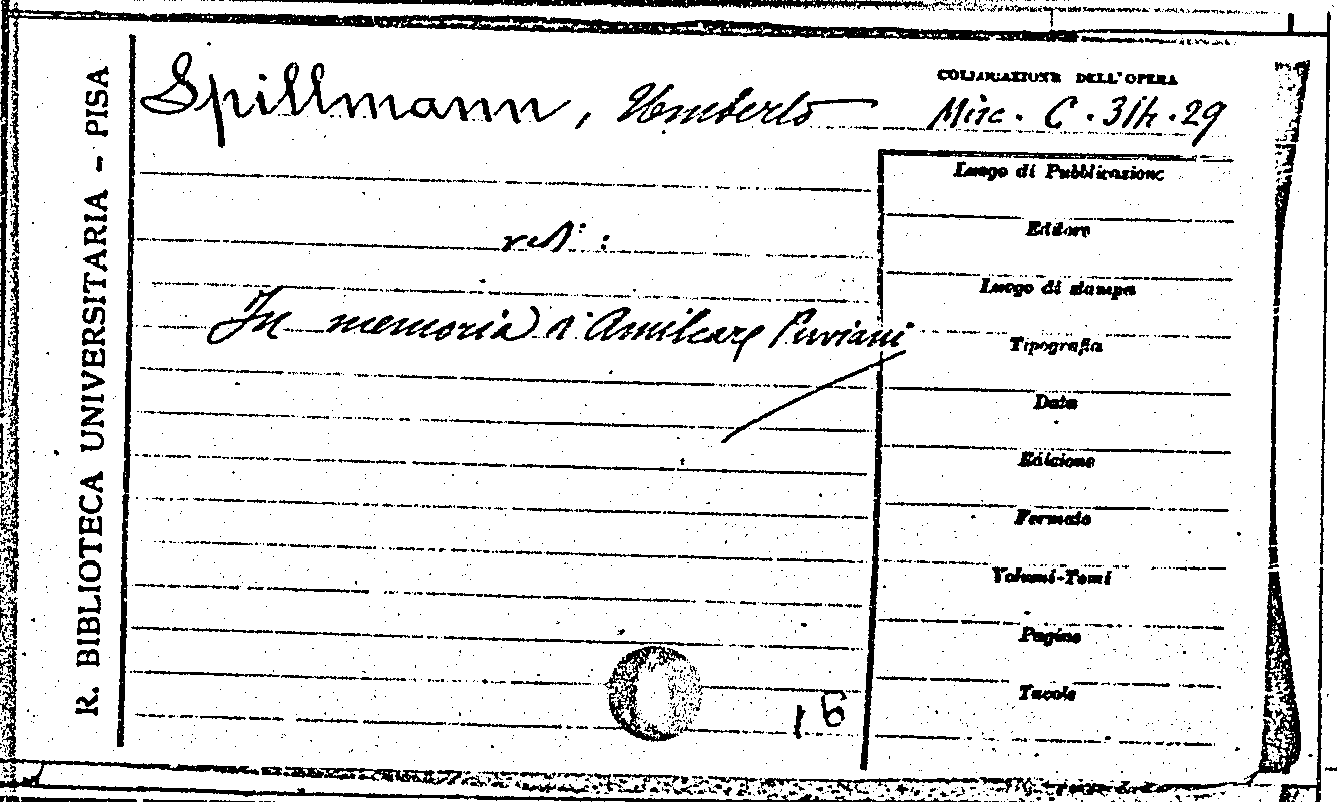 R. BIBLIOTECA UNIVERSITARIA - PISA
Spillmann, Umberto
COLLOCAZIONE DELL'OPERA
Misc. C. 314.29
Luogo di Pubblicazione
vedi:
Editore
Luogo di stampa
In memoria di Amilcare Puviani
Tipografia
Data
Edizione
Formato
Volumi-Tomi
Pagine
Tavole